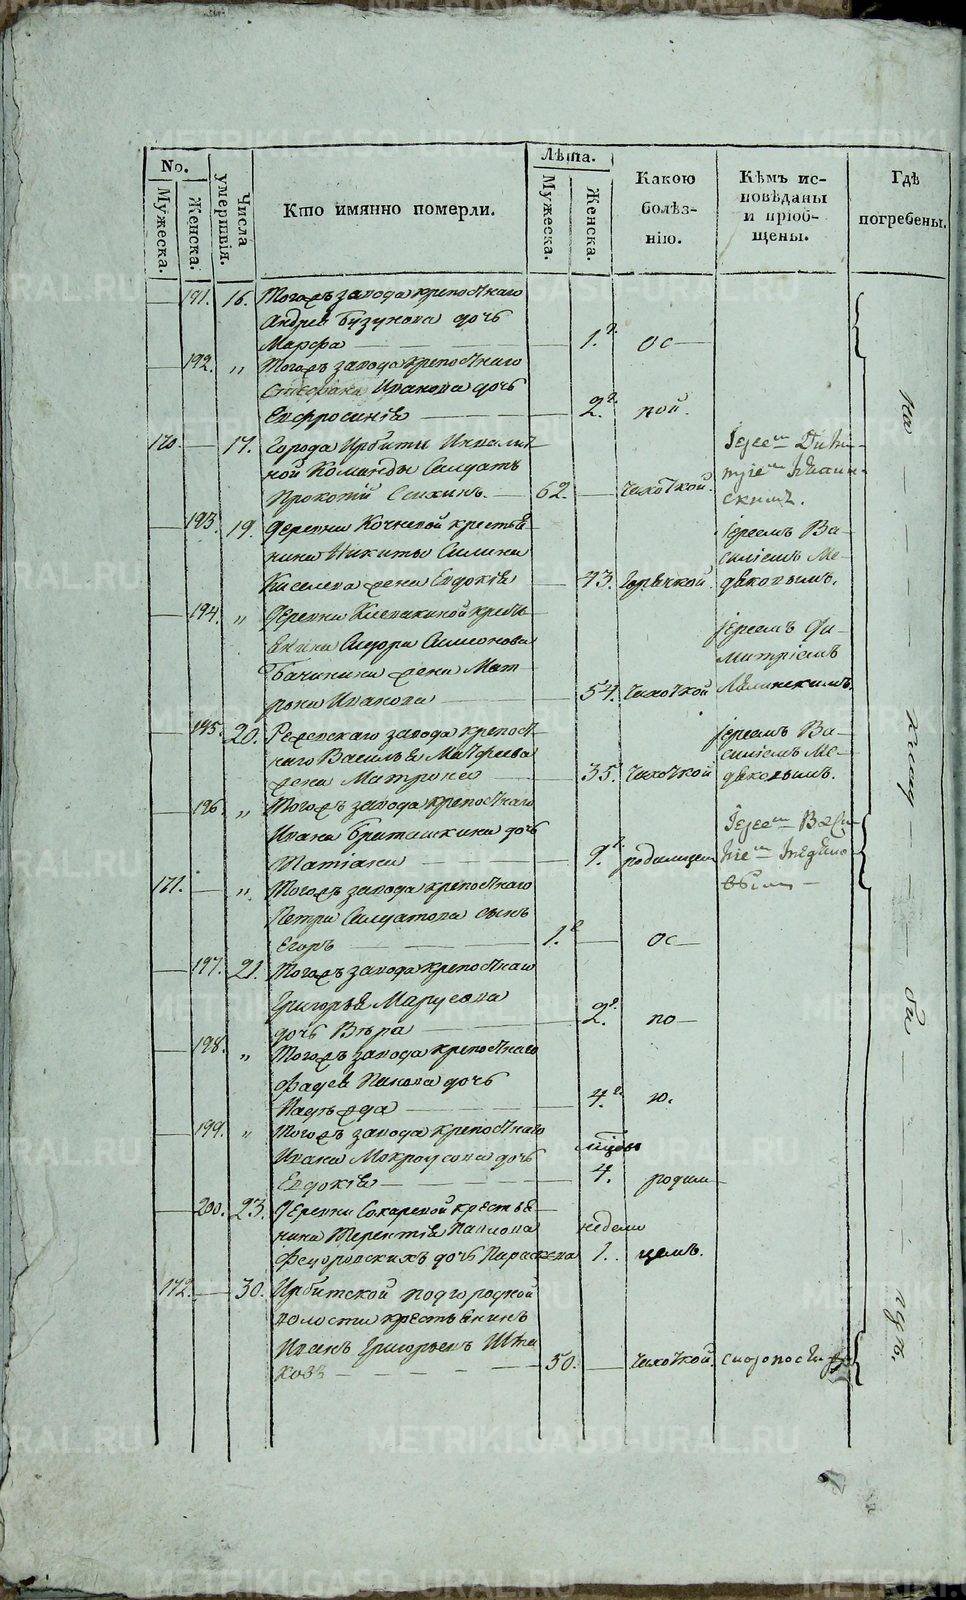 No.
Мужеска.
Женска.
Числа умертвія.
Кто имянно померли.
Лѣта.
Мужеска.
Женска.
Какою болѣз-
нію.
Кѣмъ ис-
повѣданы
и пріоб-
щены.
Гдѣ
погребены.
191. 16. Тогожъ завода крепостнаго
Андрея Бузунова дочь
Марфа 1. ос-
192. „ Тогожъ завода крепостнаго
Стефана Иванова дочь
Евфросинія 2. пой.
170. 17. Города Ирбити Инвалид-
ной Команды Салдатъ
Прокопій 62. чахоткой.
193. 19. Деревни Кочневой крестья-
нина Никиты Силина
Киселева жена Евдокія 43. горячкой.
Іереемъ Ва-
силіемъ Ме-
дѣковымъ.
194. „ Деревни крестья-
нина Сидора Симонова
Бачинина жена Мат-
рона Иванова 54. чахоткой
іереемъ Ди-
митріемъ
195. 20. Режевскаго завода крепост-
наго Василья Матфеева
жена Матрона 35. чахоткой
іереемъ Ва-
силіемъ Ме-
дѣковымъ.
196. „ Тогожъ завода крепостнаго
Ивана Бриташкина дочь
Татіана 9. родимцемъ
171. „ Тогожъ завода крепостнаго
Петра Салдатова сынъ
Егоръ 1. ос-
197. 21. Тогожъ завода крепостнаго
Григорья Марусова
дочь Вѣра 2. по-
198. „ Тогожъ завода крепостнаго
Фадея Панова дочь
Надѣжда 4. ю.
199. „ Тогожъ завода крепостнаго
Ивана Мокроусова дочь
Евдокія 4. родим-
200. 23. Деревни Сохаревой крестья-
нина Терентія Павлова недели
Федоровскихъ дочь Параскева 1. цемъ.
172. 30. Ирбитской подгородной
волости крестьянинъ
Иванъ Григорьевъ
50. чахоткой. скоропостижно
METRIKI.GASO-URAL.RU